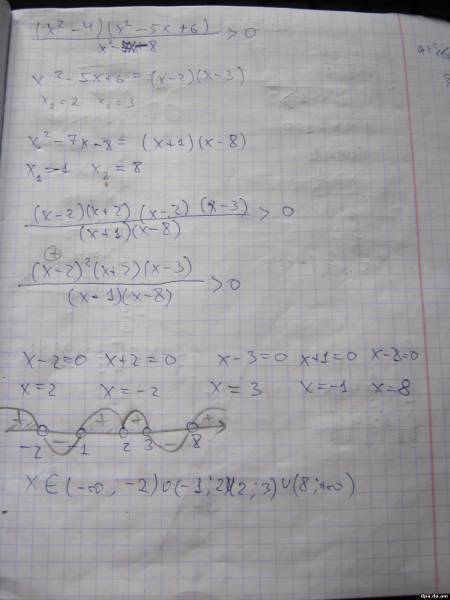 (x² - 4)(x² - 5x + 6) / x² - 7x - 8 > 0
x² - 5x + 6 = (x - 2)(x - 3)
x₁ = 2 x₂ = 3
x² - 7x - 8 = (x + 1)(x - 8)
x₁ = -1 x₂ = 8
(x - 2)(x + 2)(x - 2)(x - 3) / (x + 1)(x - 8) > 0
+
(x - 2)²(x + 2)(x - 3) / (x + 1)(x - 8) > 0
x - 2 = 0 x + 2 = 0 x - 3 = 0 x + 1 = 0 x - 8 = 0
x = 2 x = -2 x = 3 x = -1 x = 8
+ - + + - +
-2 -1 2 3 8
x ∈ (-∞; -2) ∪ (-1; 2) ∪ (2; 3) ∪ (8; +∞)
dpa.do.am